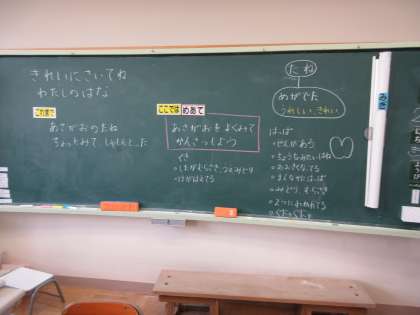 きれいにさいてね
わたしのはな
これまで
あさがおのたね
ちょっとみて
ここでは めあて
あさがおをよくみて
かんさつしよう
くき
・したがむらさき、うえみどり
・けがはえてる
たね
めがでた
うれしい、きれい
はっぱ
・せんがある
・ちょうみたいなはね
・おおきくなってる
・まんなかにはっぱ
・みどり、むらさき
・2つにわかれてる